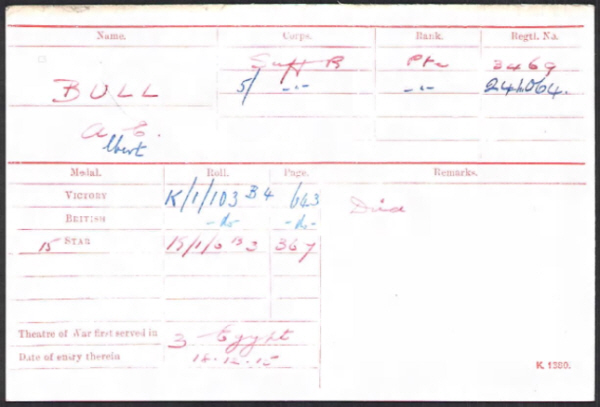 Name. Corps. Rank. Regtl. No.
BULL Suff R Pte 3469
5/ -"- -"- 241064.
A. E.
lbert
Medal. Roll. Page. Remarks.
VICTORY K/1/103 B4 643 Died
BRITISH -do- -do-
15 STAR 367
Theatre of War first served in 3 Egypt
Date of entry therein
K 1380.